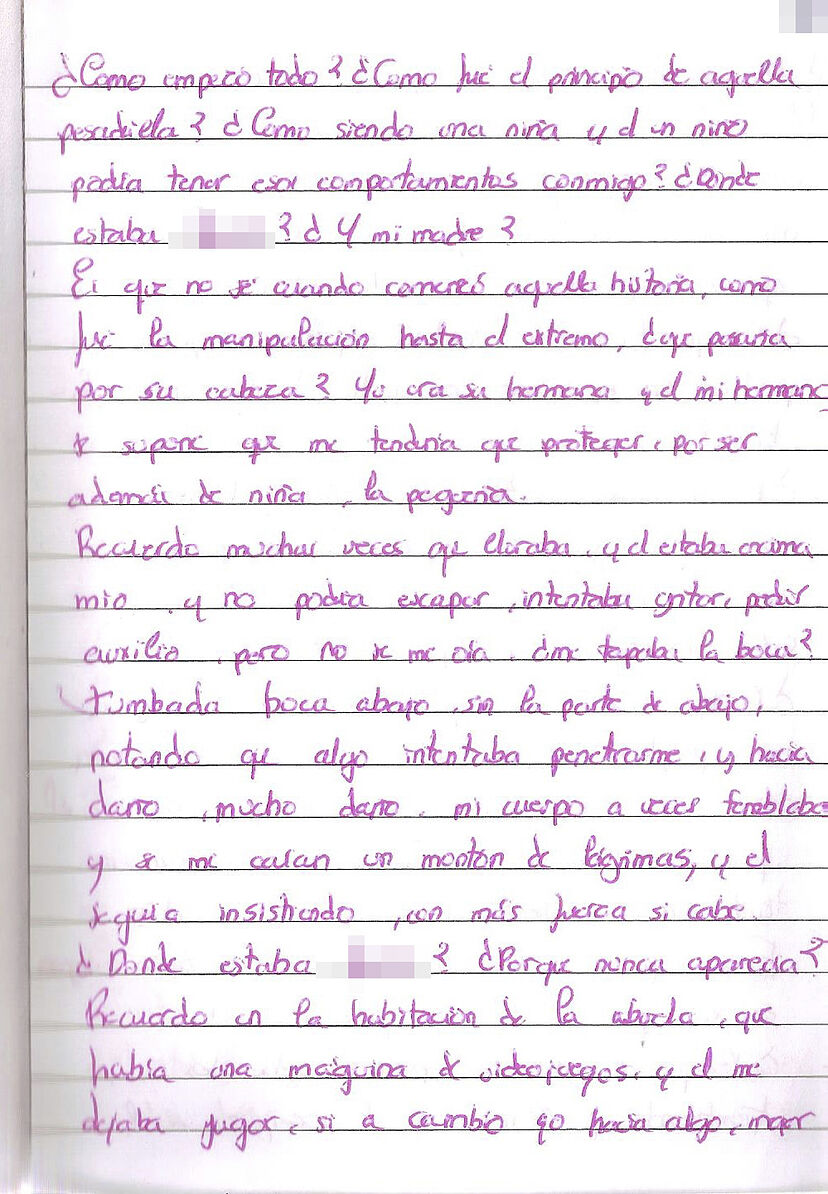 ¿Como empezó todo? ¿Como fué el principio de aquella
pesadiella? ¿Como siendo una niña y el un niño
podia tener esos comportamientos conmigo? ¿Donde
estaba ? ¿Y mi madre?
Es que no sé cuando comenzó aquella historia, como
fué la manipulación hasta el extremo, ¿que pasaria
por su cabeza? Yo era su hermana y el mi hermano
se supone que me tendria que proteger, por ser
además de niña, la pequeña.
Recuerdo muchas veces que lloraba, y el estaba encima
mio, y no podia escapar, intentaba gritar, pedir
auxilio, pero no se me oia, ¿me tapaba la boca?
tumbada boca abajo, sin la parte de abajo,
notando que algo intentaba penetrarme, y hacia
daño, mucho daño, mi cuerpo a veces temblaba
y se me caian un montón de lágrimas, y el
seguia insistiendo, con más fuerza si cabe.
¿Donde estaba ? ¿Porque nunca aparecia?
Recuerdo en la habitación de la abuela, que
había una máiquina de videojuegos, y el me
dejaba jugar, si a cambio yo hacia algo,